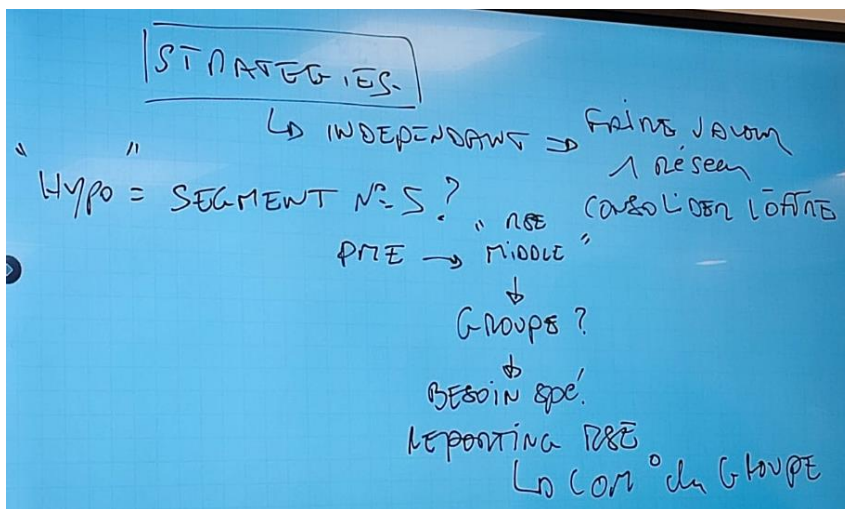 STRATEGIES.
↳ INDEPENDANT ⇒ FAIRE VALOIR
1 RéSeau
CONSOLIDER L'OFFRE
"HYPO" = SEGMENT N° 5 ?
PME → "RSE MIDDLE"
↓
GROUPE ?
↓
BESOIN Spé.
REPORTING RSE
↳ COM° du GROUPE